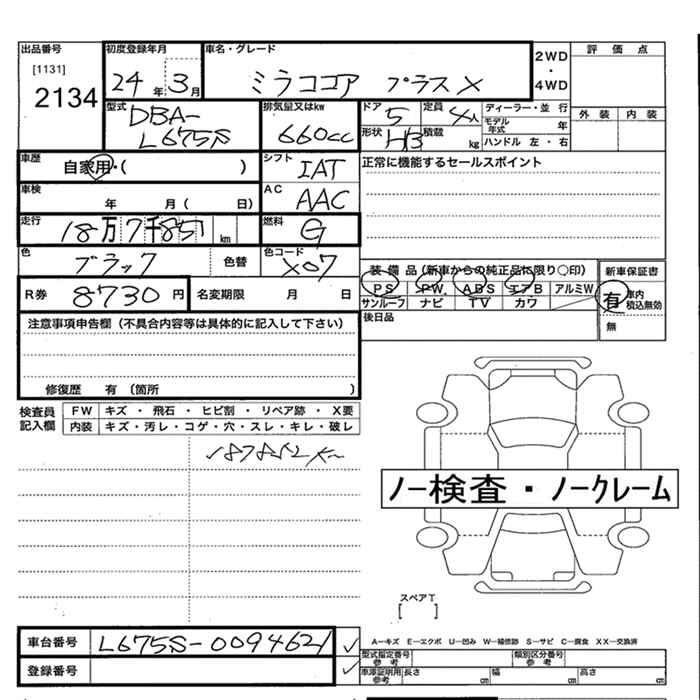 出品番号 初度登録年月 車名・グレード 評価点
[1131] 2134 24年 3月 ミラココア プラスX 2WD・4WD
型式 排気量又はkw ドア 定員 ディーラー・並行 外装 内装
DBA-L675S 660cc 5 4人 モデル年式 年
形状 H/B 積載 kg ハンドル 左・右
車歴 自家用・( ) シフト IAT 正常に機能するセールスポイント
車検 年 月( 日) AC AAC
走行 18万7千851km 燃料 G
色 ブラック 色替 色コード X07 装備品(新車からの純正品に限り○印) 新車保証書
R券 8730円 名変期限 月 日 PS PW ABS エアB アルミW 有 車内積込無効
サンルーフ ナビ TV カワ 無
注意事項申告欄(不具合内容等は具体的に記入して下さい) 後日品
修復歴 有 (箇所 )
検査員記入欄 FW キズ・飛石・ヒビ割・リペア跡・X要
内装 キズ・汚レ・コゲ・穴・スレ・キレ・破レ
ノー検査・ノークレーム
スペアT
[ ]
車台番号 L675S-0094621 A-キズ E-エクボ U-凹み W-補修跡 S-サビ C-腐食 XX-交換済
登録番号 型式指定番号 参考 類別区分番号 参考
車庫証明用参考 長さ cm 幅 cm 高さ cm